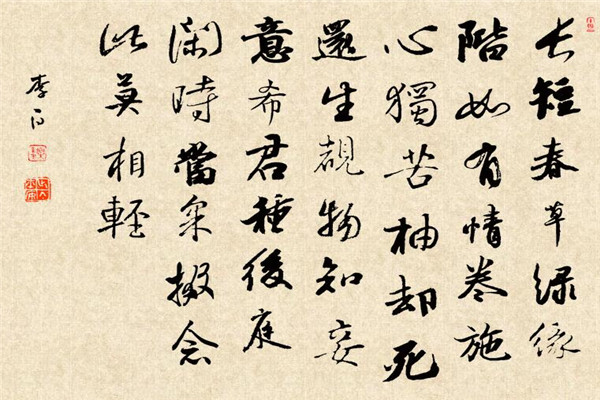 长短春草绿缘
階如有情卷施
心獨苦柚却死
還生覩物知妾
意希君種後庭
閑時當采掇念
此莫相輕
李白